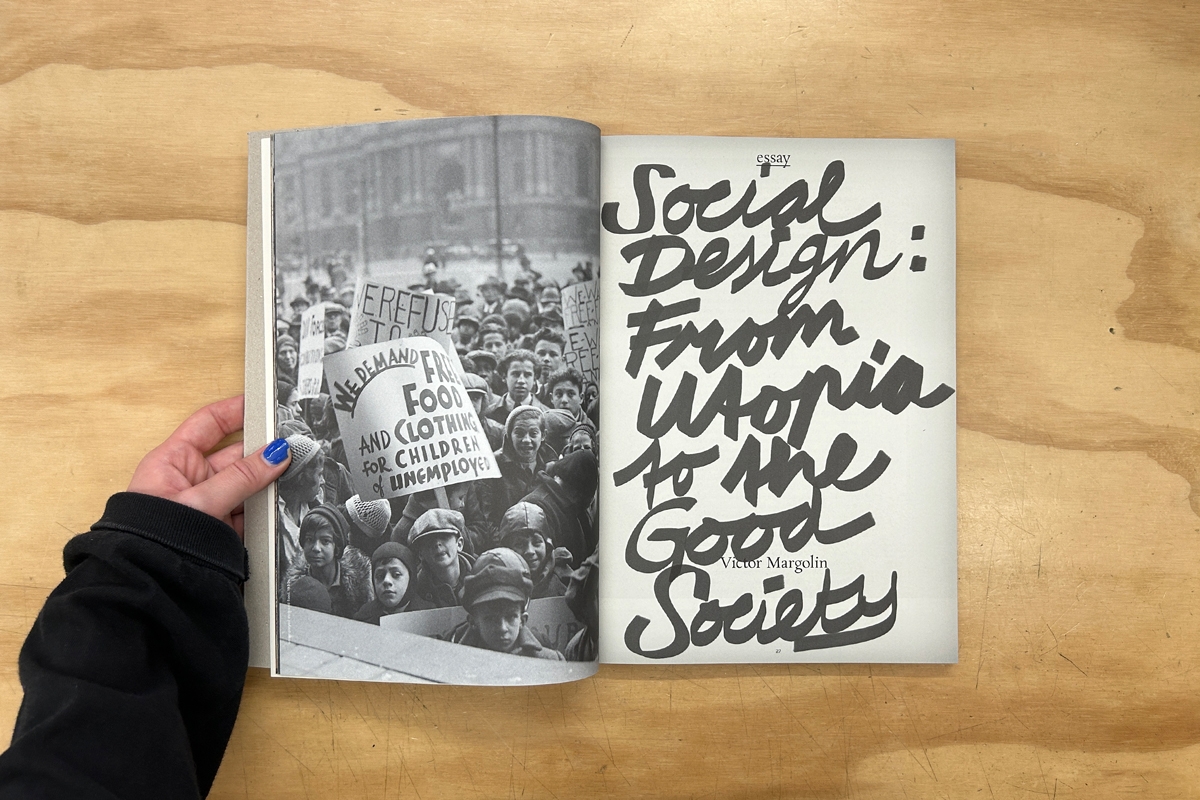 EREFUSE
TO
WE DEMAND FREE
FOOD
AND CLOTHING
FOR CHILDREN
of UNEMPLOYED
essay
Social
Design:
From
Utopia
to the
Good
Victor Margolin
Society
27